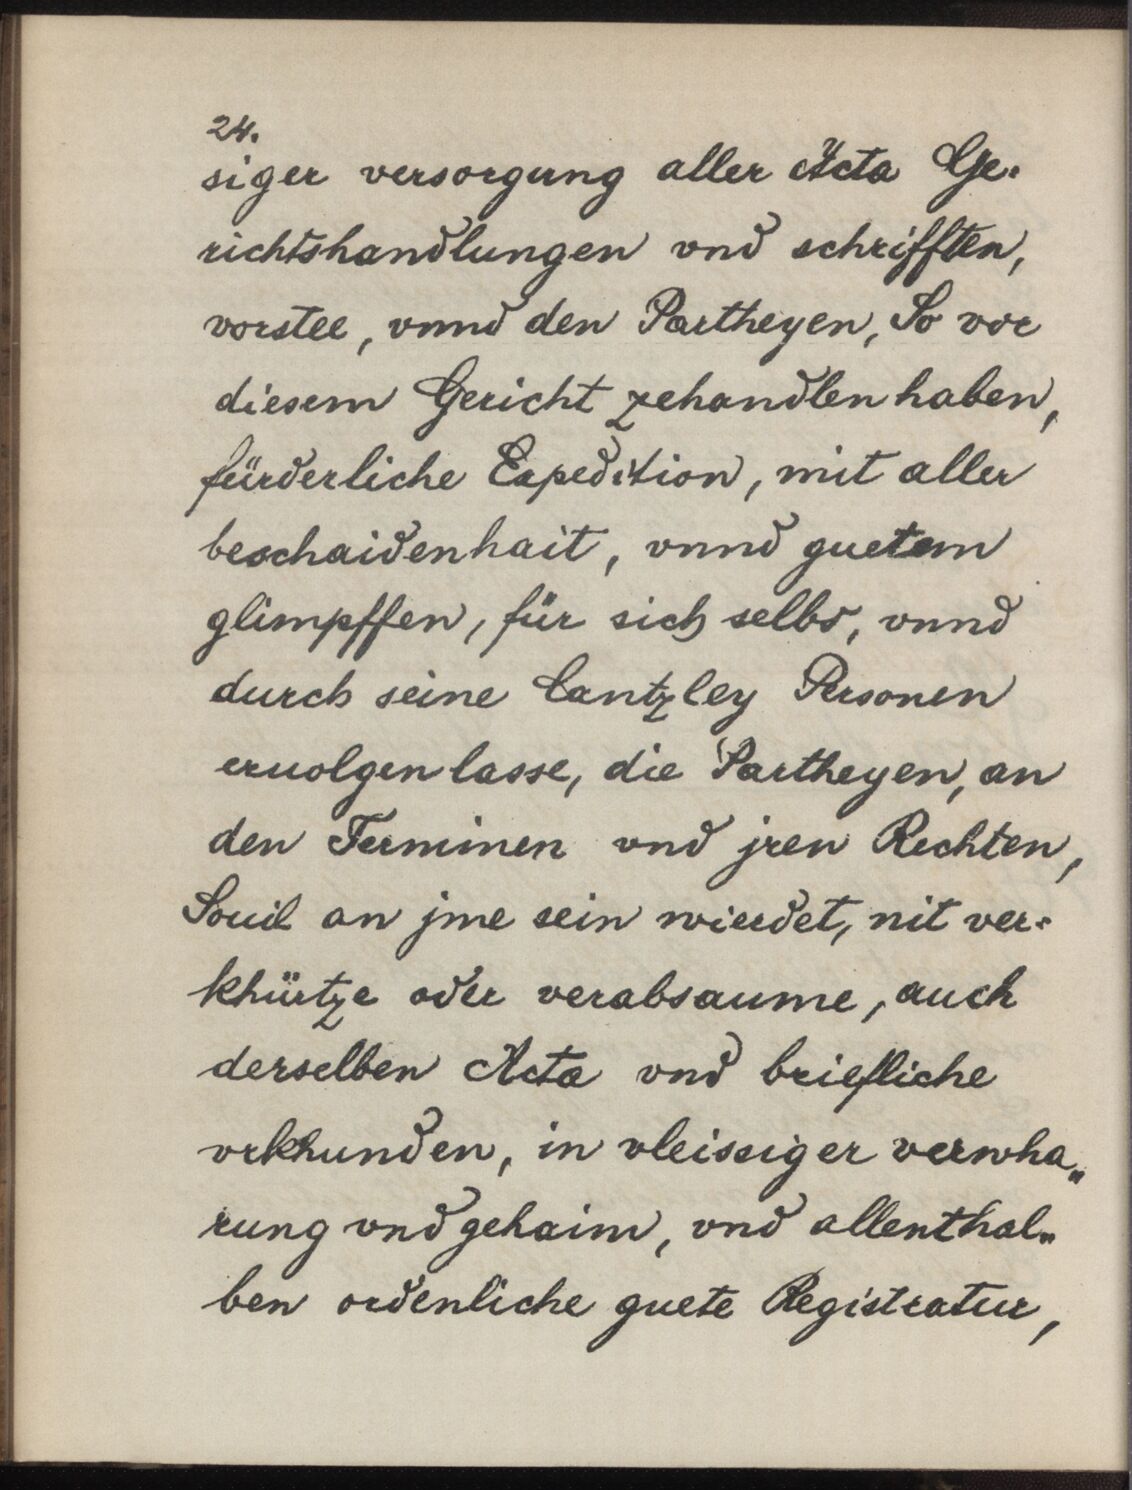 24.
siger versorgung aller Acta Ge-
richtshandlungen vnd schrifften,
vorstee, vnnd den Partheyen, So vor
diesem Gericht zehandlen haben,
fürderliche Expedition, mit aller
beschaidenhait, vnnd guetem
glimpffen, für sich selbs, vnnd
durch seine Cantzley Personen
eruolgen lasse, die Partheyen, an
den Terminen vnd jren Rechten,
Souil an jme sein wierdet, nit ver-
khürtze oder verabsaume, auch
derselben Acta vnd briefliche
vrkhunden, in vleissiger verwha„
rung vnd gehaim, vnd allenthal„
ben ordenliche guete Registratur,